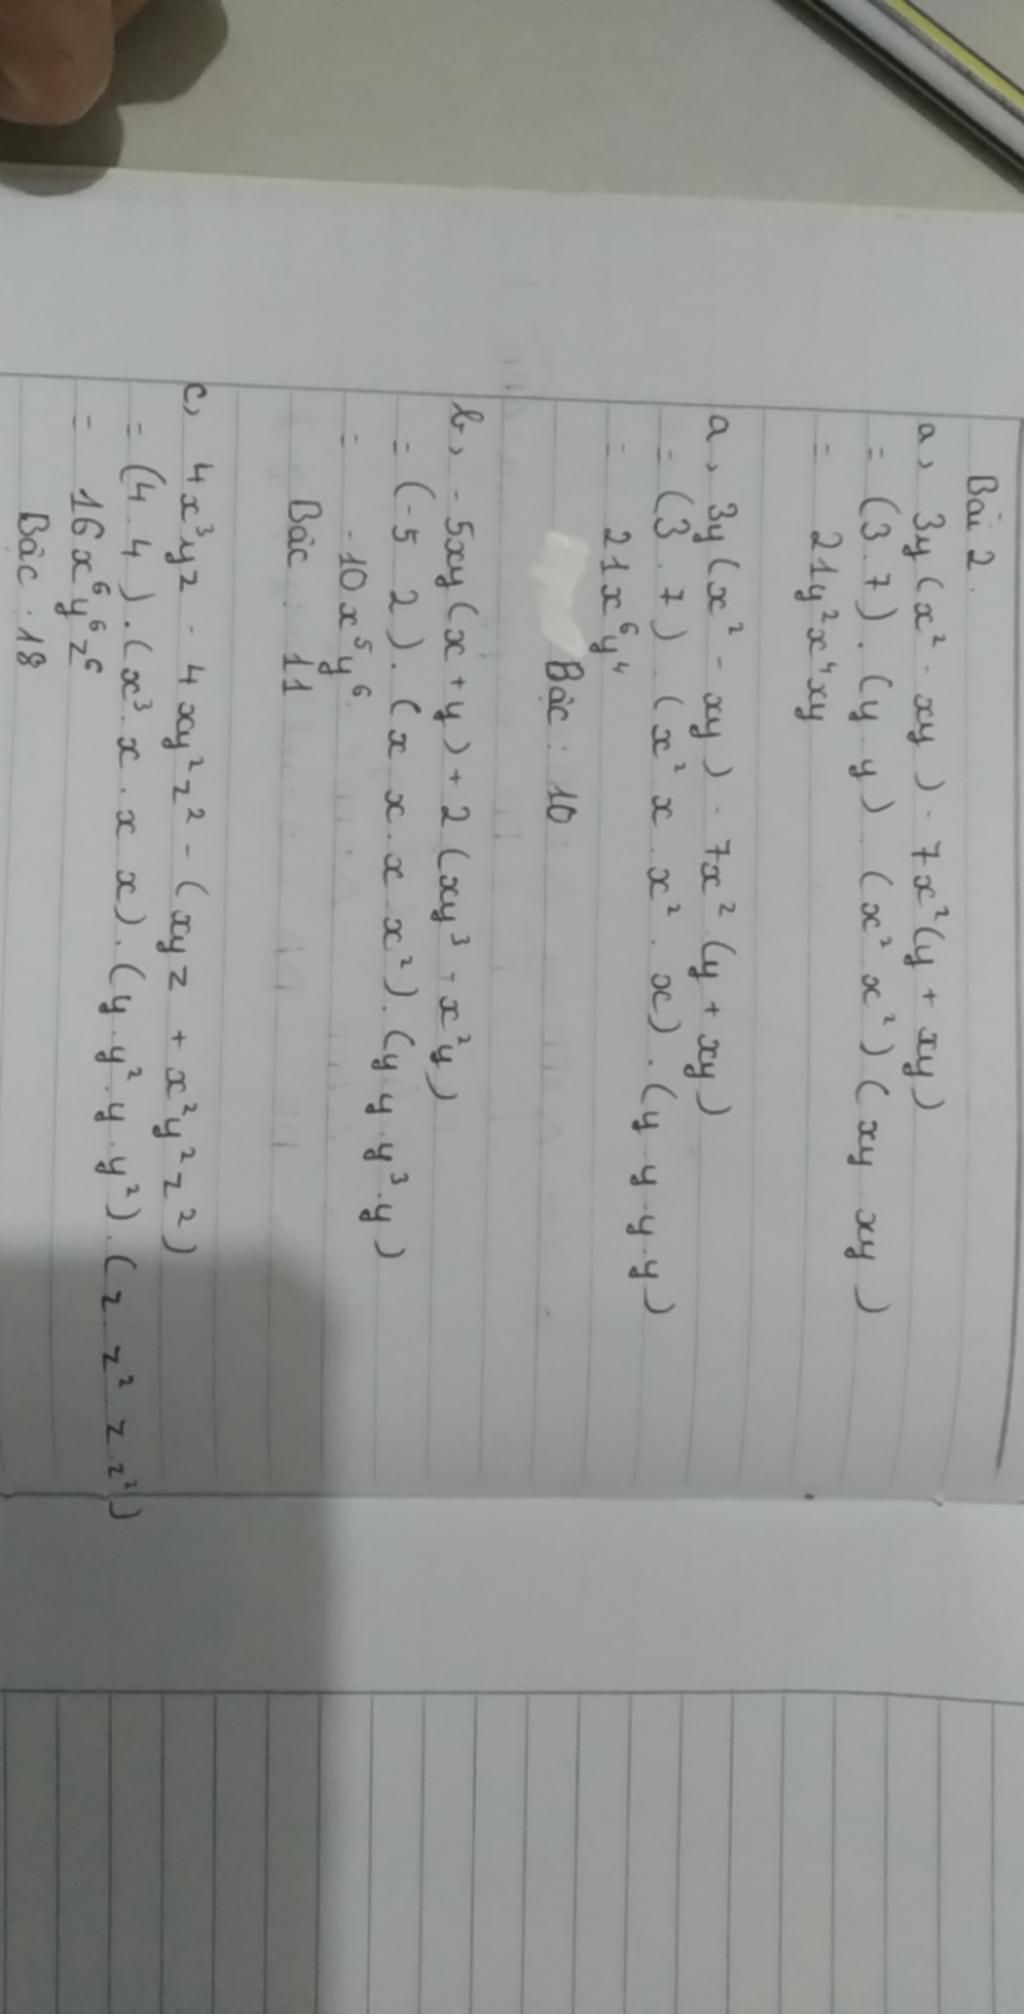 Bài 2.
a, 3y(x² - xy) - 7x²(y + xy)
= (3.7).(y.y).(x².x²)(xy.xy)
= 21y²x⁴xy
a, 3y(x² - xy) - 7x²(y + xy)
= (3.7).(x².x.x².x).(y.y.y.y)
= 21x⁶y⁴
Bậc: 10
b, -5xy(x + y) + 2(xy³ - x²y)
= (-5.2).(x.x.x.x²).(y.y.y³.y)
= -10x⁵y⁶
Bậc: 11
c, 4x³yz - 4xy²z² - (xyz + x²y²z²)
= (4.4).(x³.x.x.x).(y.y².y.y²).(z.z².z.z²)
= 16x⁶y⁶z⁶
Bậc: 18